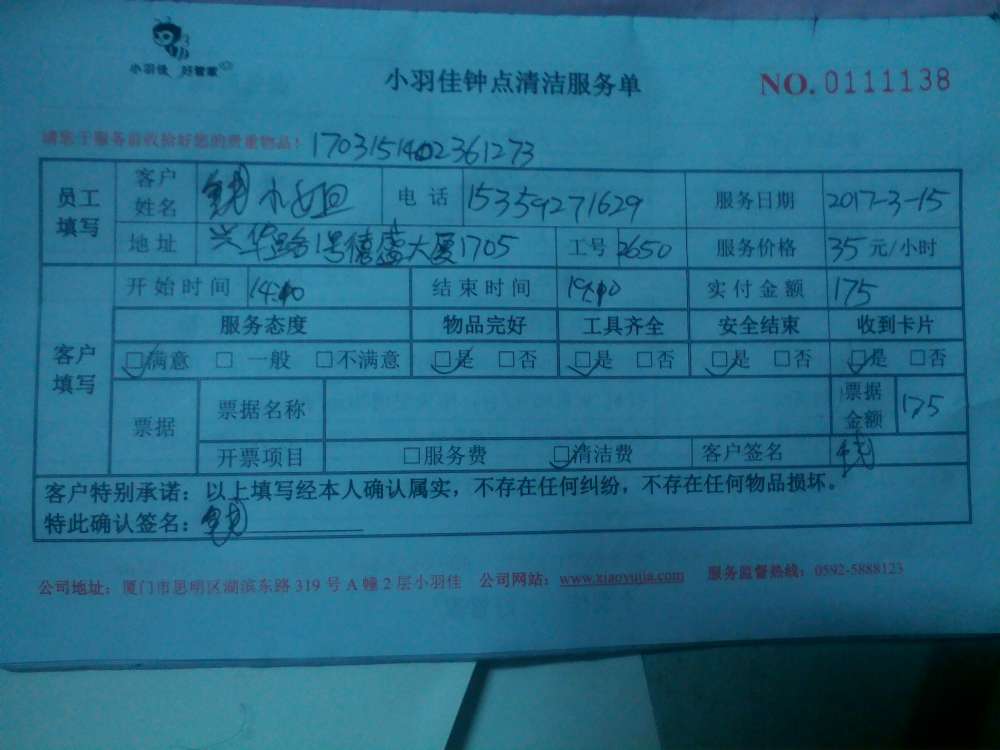 小羽佳 好管家
小羽佳钟点清洁服务单
NO. 0111138
请您于服务前收拾好您的贵重物品!
1703151402361273
员工填写 客户姓名 钱小姐 电话 15359271629 服务日期 2017-3-15
地址 兴华路1号德盛大厦1705 工号 2650 服务价格 35元/小时
客户填写 开始时间 14:10 结束时间 19:10 实付金额 175
服务态度 物品完好 工具齐全 安全结束 收到卡片
☑满意 □一般 □不满意 ☑是 □否 ☑是 □否 ☑是 □否 ☑是 □否
票据 票据名称 票据金额 175
开票项目 □服务费 ☑清洁费 客户签名 钱
客户特别承诺:以上填写经本人确认属实,不存在任何纠纷,不存在任何物品损坏。
特此确认签名:钱
公司地址:厦门市思明区湖滨东路319号A幢2层小羽佳 公司网站:www.xiaoyujia.com 服务监督热线:0592-5888123